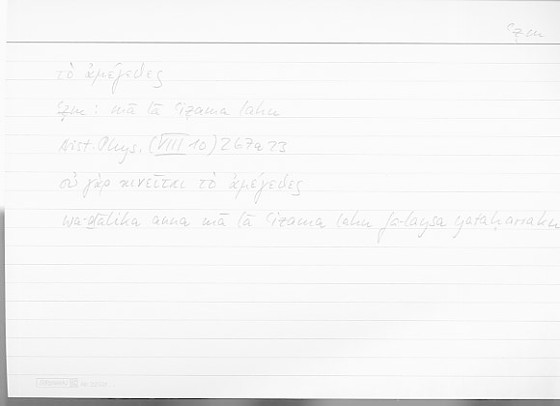 ʿẓm
τὸ ἀμέγεθες
ʿẓm : mā lā ʿiẓama lahu
Arist. Phys. (VIII 10) 267a23
οὐ γὰρ κινεῖται τὸ ἀμέγεθες
wa-ḏālika anna mā lā ʿiẓama lahu fa-laysa yataḥarraku